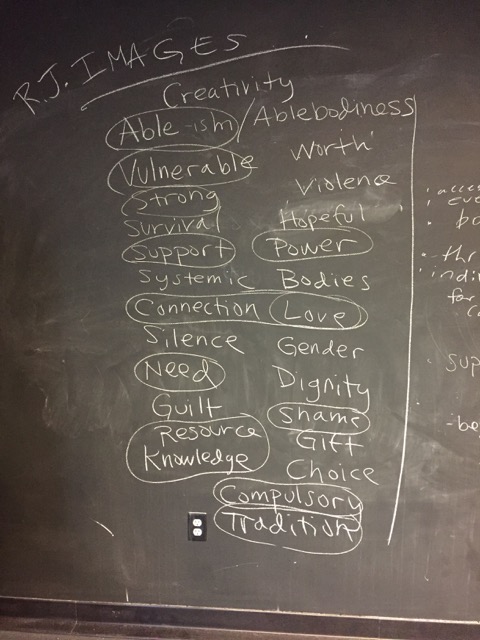 R.J. IMAGES
Creativity
Able-ism/Ablebodiness
Vulnerable
Worth
Strong
Violence
Survival
Hopeful
Support
Power
Systemic
Bodies
Connection
Love
Silence
Gender
Need
Dignity
Guilt
Shame
Resource
Gift
Knowledge
Choice
Compulsory
Tradition